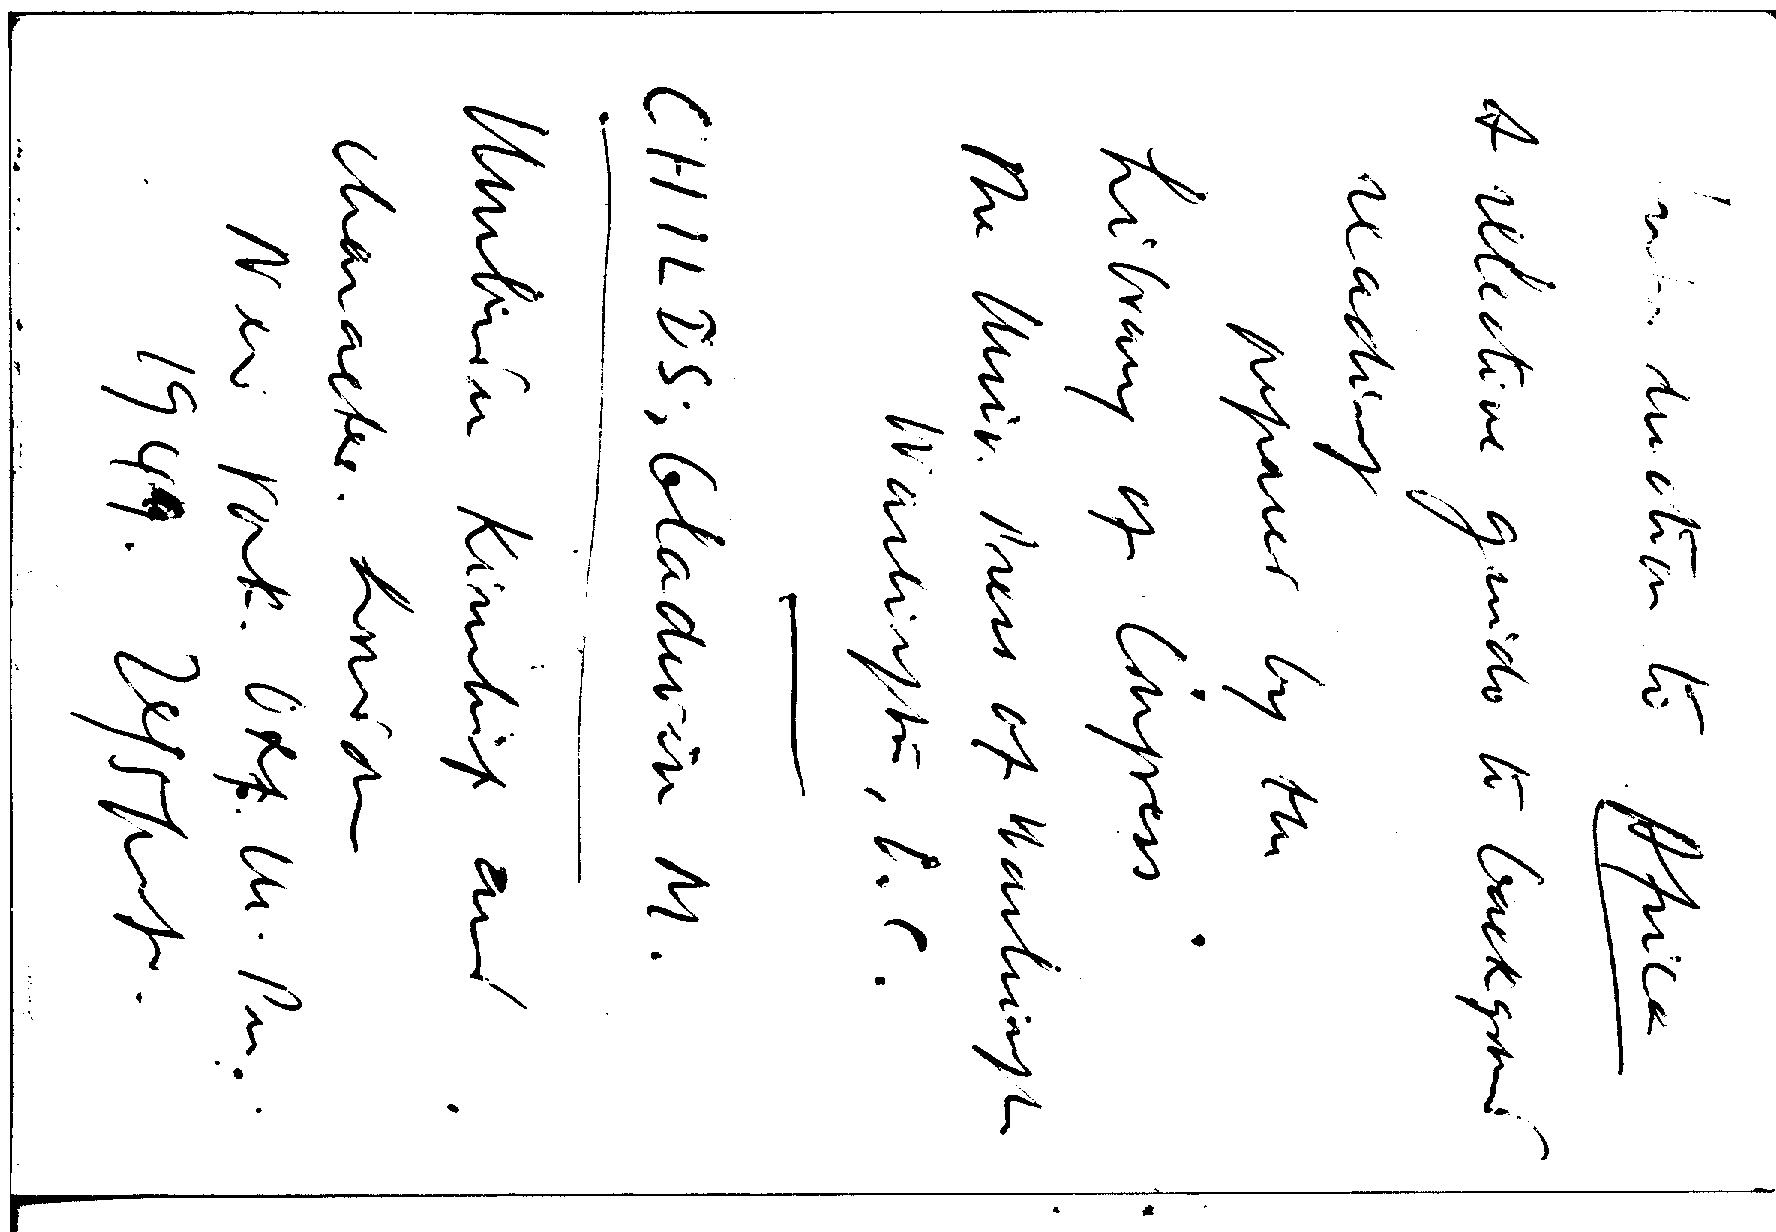 Introduction to Africa
A selective guide to background
reading
prepared by the
Library of Congress
The Univ. Press of Washington
Washington, D.C.
CHILDS, Gladwin M.
Umbundu Kinship and
character. London
New York. Oxf. U. Pr.
1949. 245 p.